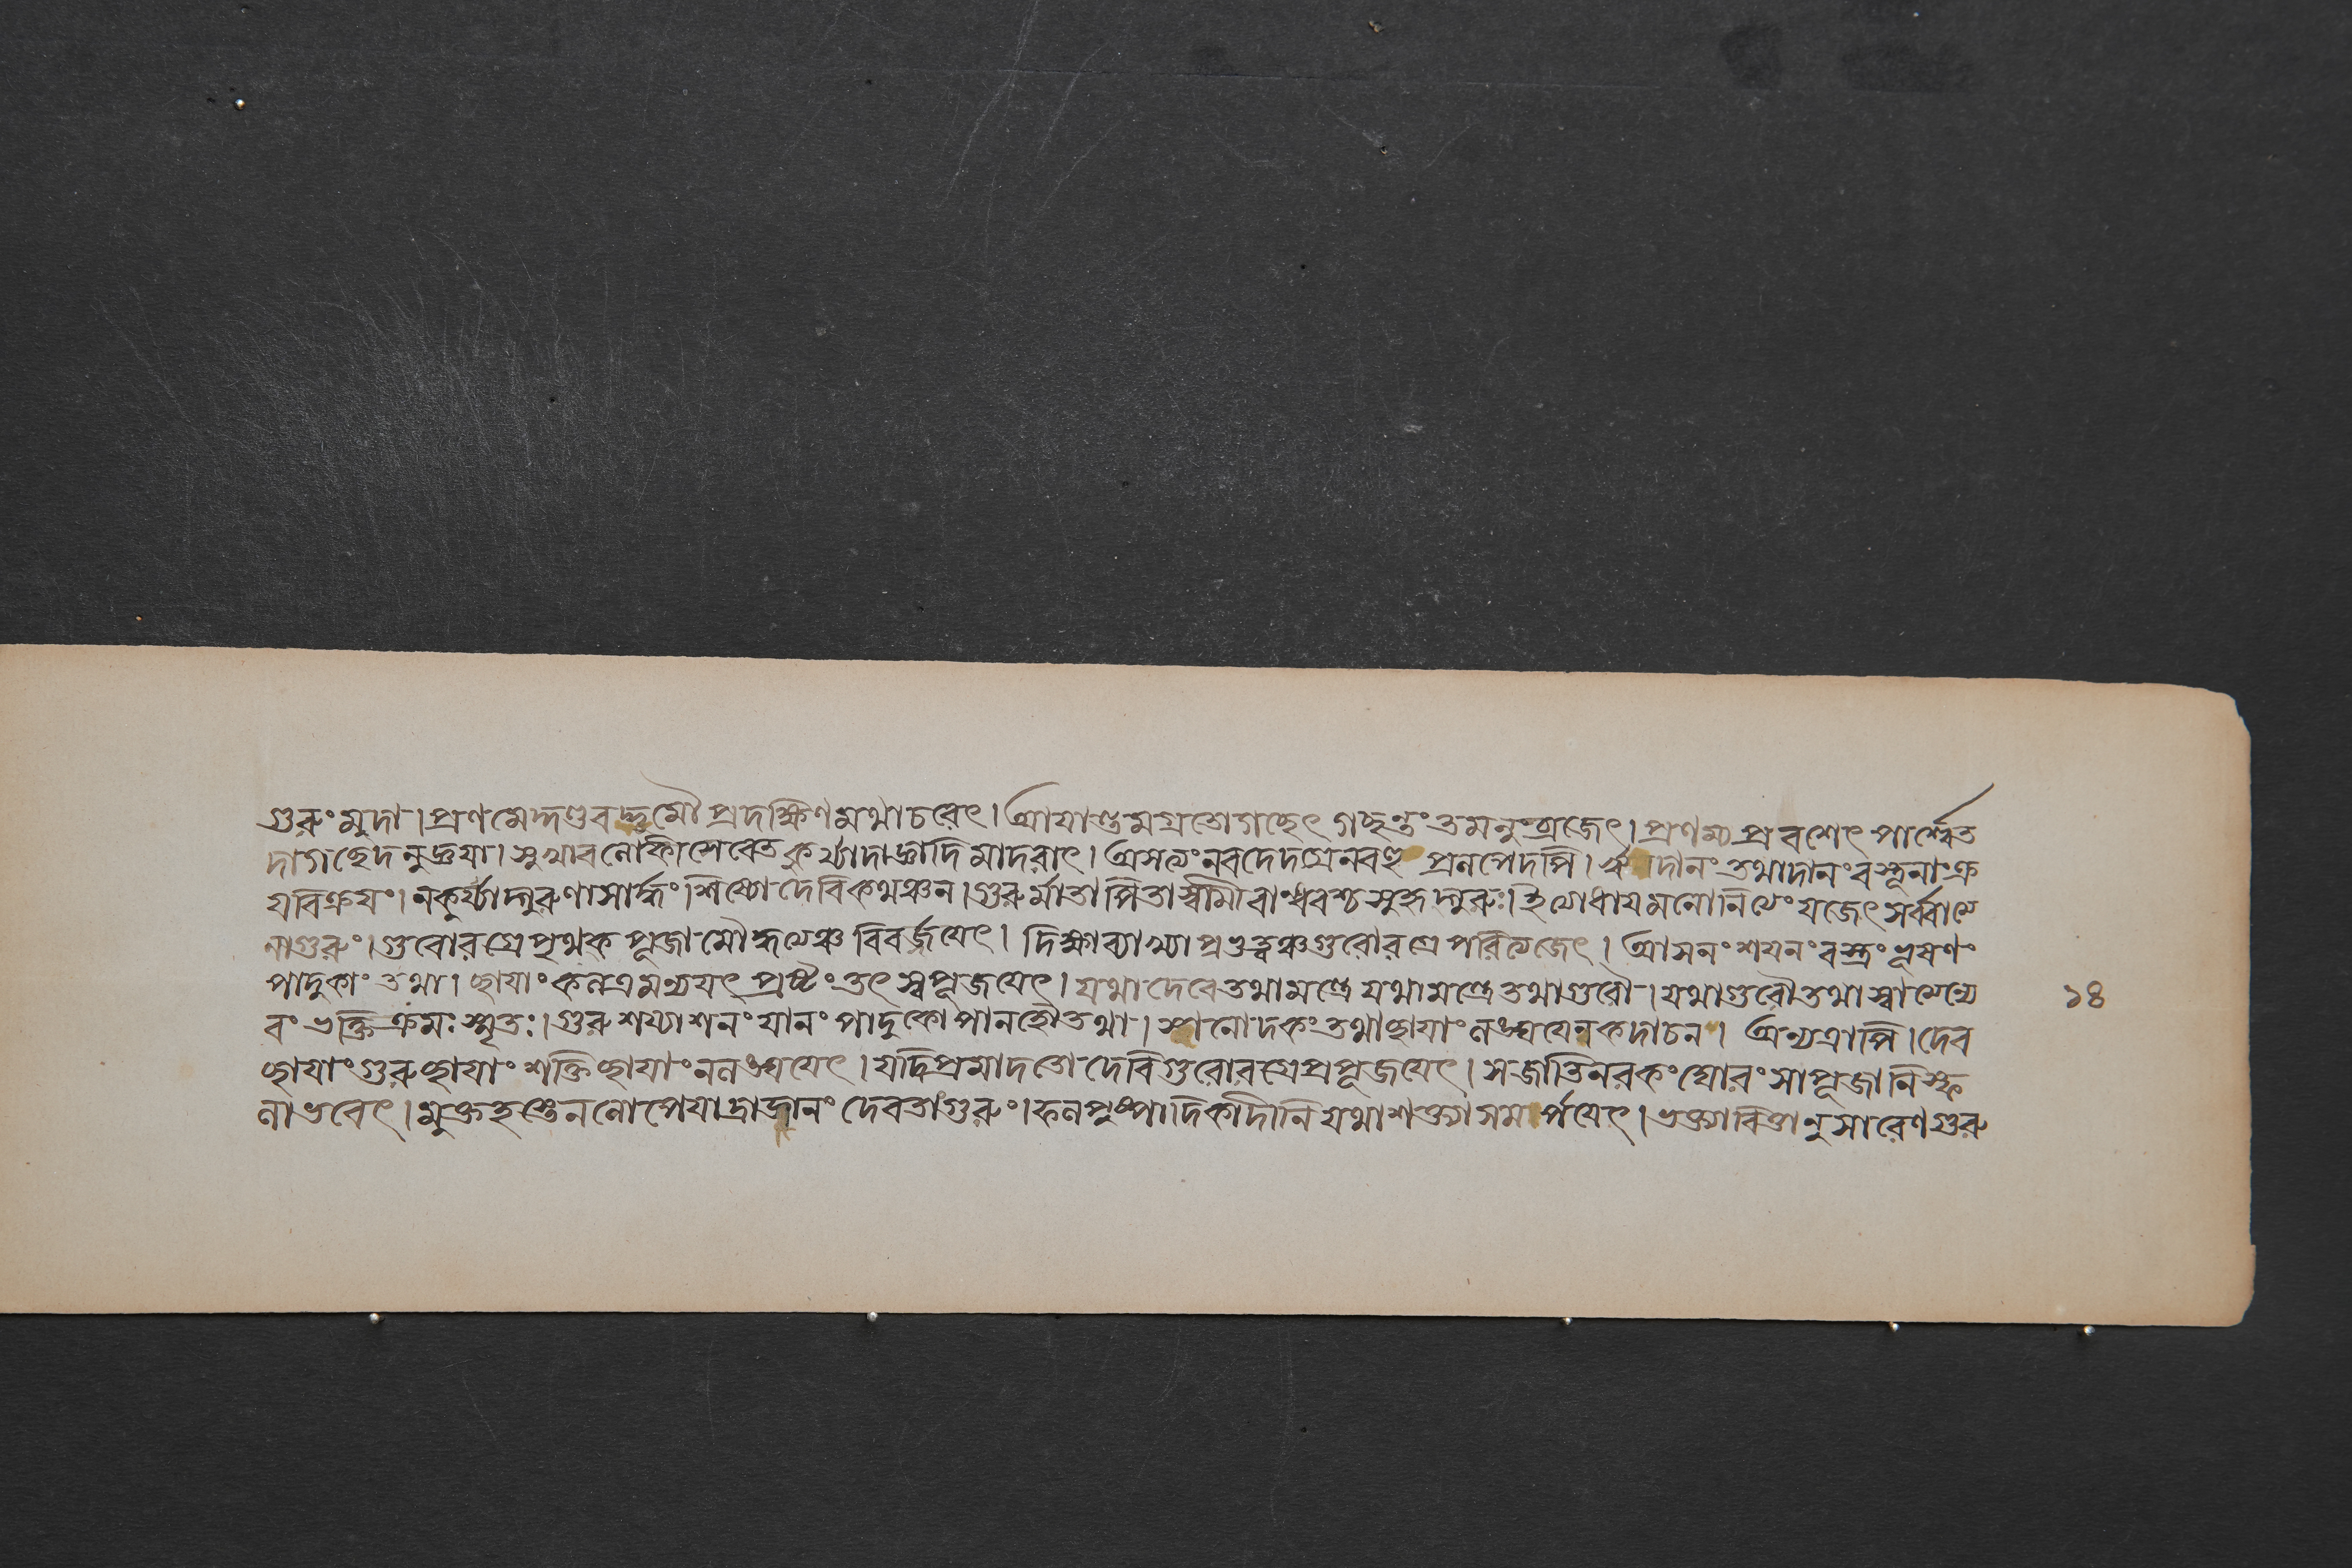 গুরুং মুদা। প্রণমেদ্দণ্ডবদ্ভূমৌ প্রদক্ষিণমথাচরেৎ। আয়ান্তমগ্রতোগচ্ছেৎ গচ্ছন্তং তমনুংব্রজেৎ। প্রণম্য প্রবশেৎ পার্শ্বেত
দাগচ্ছেদনুজ্ঞয়া। মুখাবলোকাসেবেত কুর্য্যাদাজ্ঞাদিমাদরাৎ। অসত্যং নবদেদগ্রেনবহু প্রলপেদপি। ঋণদানং তথাদানং বস্তূনাং ক্র
য়বিক্রয়ং। নকুর্য্যাদ্গুরুণাসার্দ্ধং। শিষ্যোদেবিকথঞ্চন। গুরুর্মাতাপিতাস্বামীবান্ধবশ্চ সুহৃদ্গুরুঃ। ইত্যোধায়মনোনিত্যং যজেৎ সর্ব্বাত্মে
নাগুরুং। গুরোরগ্রেপৃথক পূজামৌদ্ধত্যেঞ্চ বিবর্জ্জয়েৎ। দিক্ষাব্যাখ্যা প্রভুত্বঞ্চগুরোরগ্রে পরিত্যজেৎ। আসনং শয়নং বস্ত্রং ভূষণং
পাদুকাং তথা। ছায়াং কলত্রমণ্যয়ৎ প্রষ্টং তৎ স্বপূজয়েৎ। যথা দেবেতথামন্ত্রে যথামন্ত্রেতথাগুরৌ। যথাগুরৌতথাস্বাত্মেন্যে
বং ভক্তিক্রমঃ স্মৃতঃ। গুরুশয্যাশনং যানং পাদুকোপানহৌতথা। স্নানোদকং তথাছায়াং লঙ্ঘয়েনকদাচন। অন্যত্রাপি। দেব
ছায়াং গুরুছায়াং শক্তিছায়াং নলঙ্ঘয়েৎ। যদিপ্রমাদতো দেবিগুরোরগ্রেপ্রপূজয়েৎ। সজাতিনরকংঘোরং সাপূজানিস্ফ
লাভবেৎ। মুক্তহস্তেননোপেয়াদ্রাজানং দেবতাংগুরুং। ফলপুষ্পাদিকাদীনি যথাশক্ত্যাসমর্পয়েৎ। ভক্ত্যাবিত্তানুসারেণগুরু
১৪